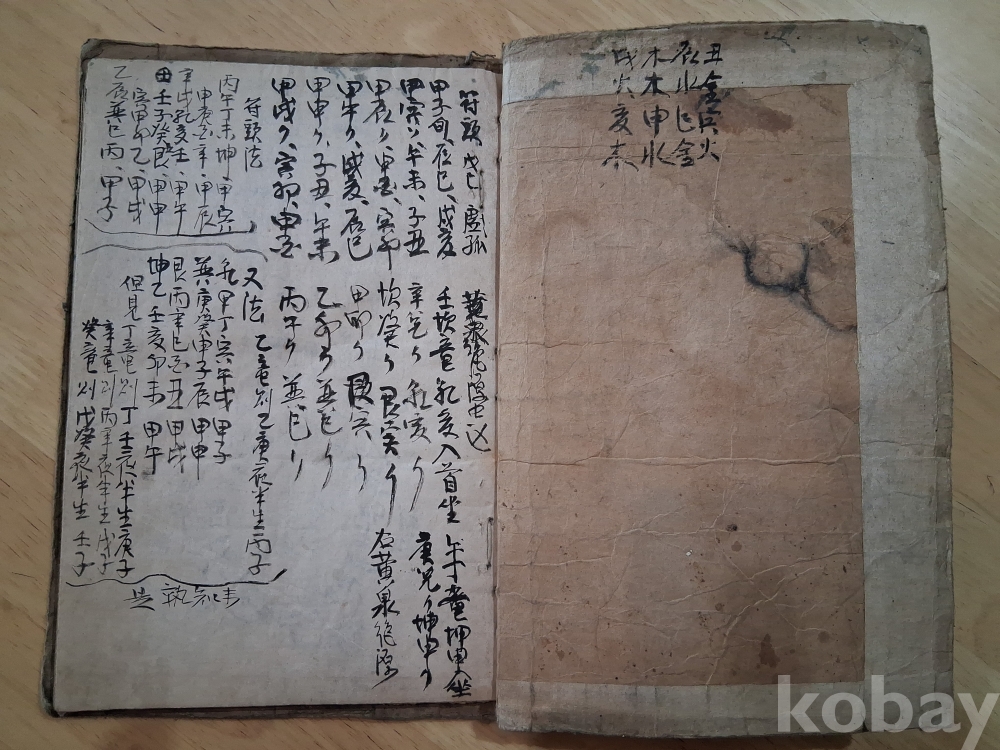 丑金寅火
辰水巳金
木木申水
戌火亥木
符頭 戊己 虛孤
甲子旬、辰巳、戌亥
甲寅〃、午未、子丑
甲辰〃、申酉、寅卯
甲午〃、戌亥、辰巳
甲申〃、子丑、午未
甲戌〃、寅卯、申酉
黃泉
壬坎龍 乾亥入首坐 午龍坤申坐
辛兌〃 乾亥〃 庚兌〃坤申〃
坎癸〃 艮寅〃 右黃泉
甲卯〃 艮寅〃
乙卯〃 巽巳〃
丙午〃 巽巳〃
符頭法
丙午丁未坤、甲寅
申庚酉辛、甲辰
辛戌乾亥壬、甲午
壬子癸艮、甲申
寅甲卯乙、甲戌
乙辰巽巳丙、甲子
又法 乙龍則乙庚夜半生丙子
乾甲丁寅午戌 甲子
巽庚癸甲子辰 甲申
艮丙辛巳酉丑 甲戌
坤乙壬亥卯未 甲午
但見丁龍則丁壬夜半生庚子
辛龍則丙辛夜半生戊子
癸龍則戊癸夜半生壬子
kobay